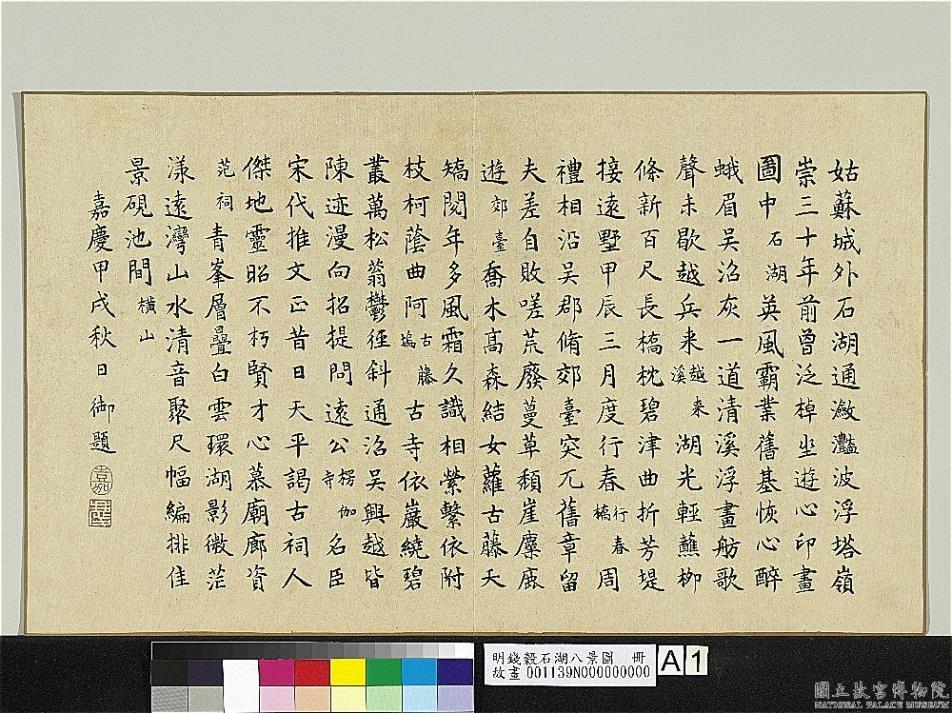 姑蘇城外石湖通瀲灩波浮塔嶺
崇三十年前曾泛棹坐遊心印畫
圖中石湖英風霸業舊基恢心醉
蛾眉吳沼灰一道清溪浮畫舫歌
聲未歇越兵来越来溪湖光輕蘸柳
條新百尺長橋枕碧津曲折芳堤
接遠墅甲辰三月度行春行春橋周
禮相沿吳郡脩郊臺突兀舊章留
夫差自敗嗟荒廢蔓草頹崖麋鹿
遊郊臺喬木高森結女蘿古藤天
矯閱年多風霜久識相縈繫依附
枝柯蔭曲阿古藤塢古寺依巖繞碧
叢萬松蓊鬱徑斜通沼吳興越皆
陳迹漫向招提問遠公楞伽寺名臣
宋代推文正昔日天平謁古祠人
傑地靈昭不朽賢才心慕廟廊資
范祠青峯層疊白雲環湖影微茫
漾遠灣山水清音聚尺幅編排佳
景硯池間橫山
嘉慶甲戌秋日御題
嘉
明錢穀石湖八景圖 冊
故畫 001139N000000000
A 1
國立故宮博物院
NATIONAL PALACE MUSEUM